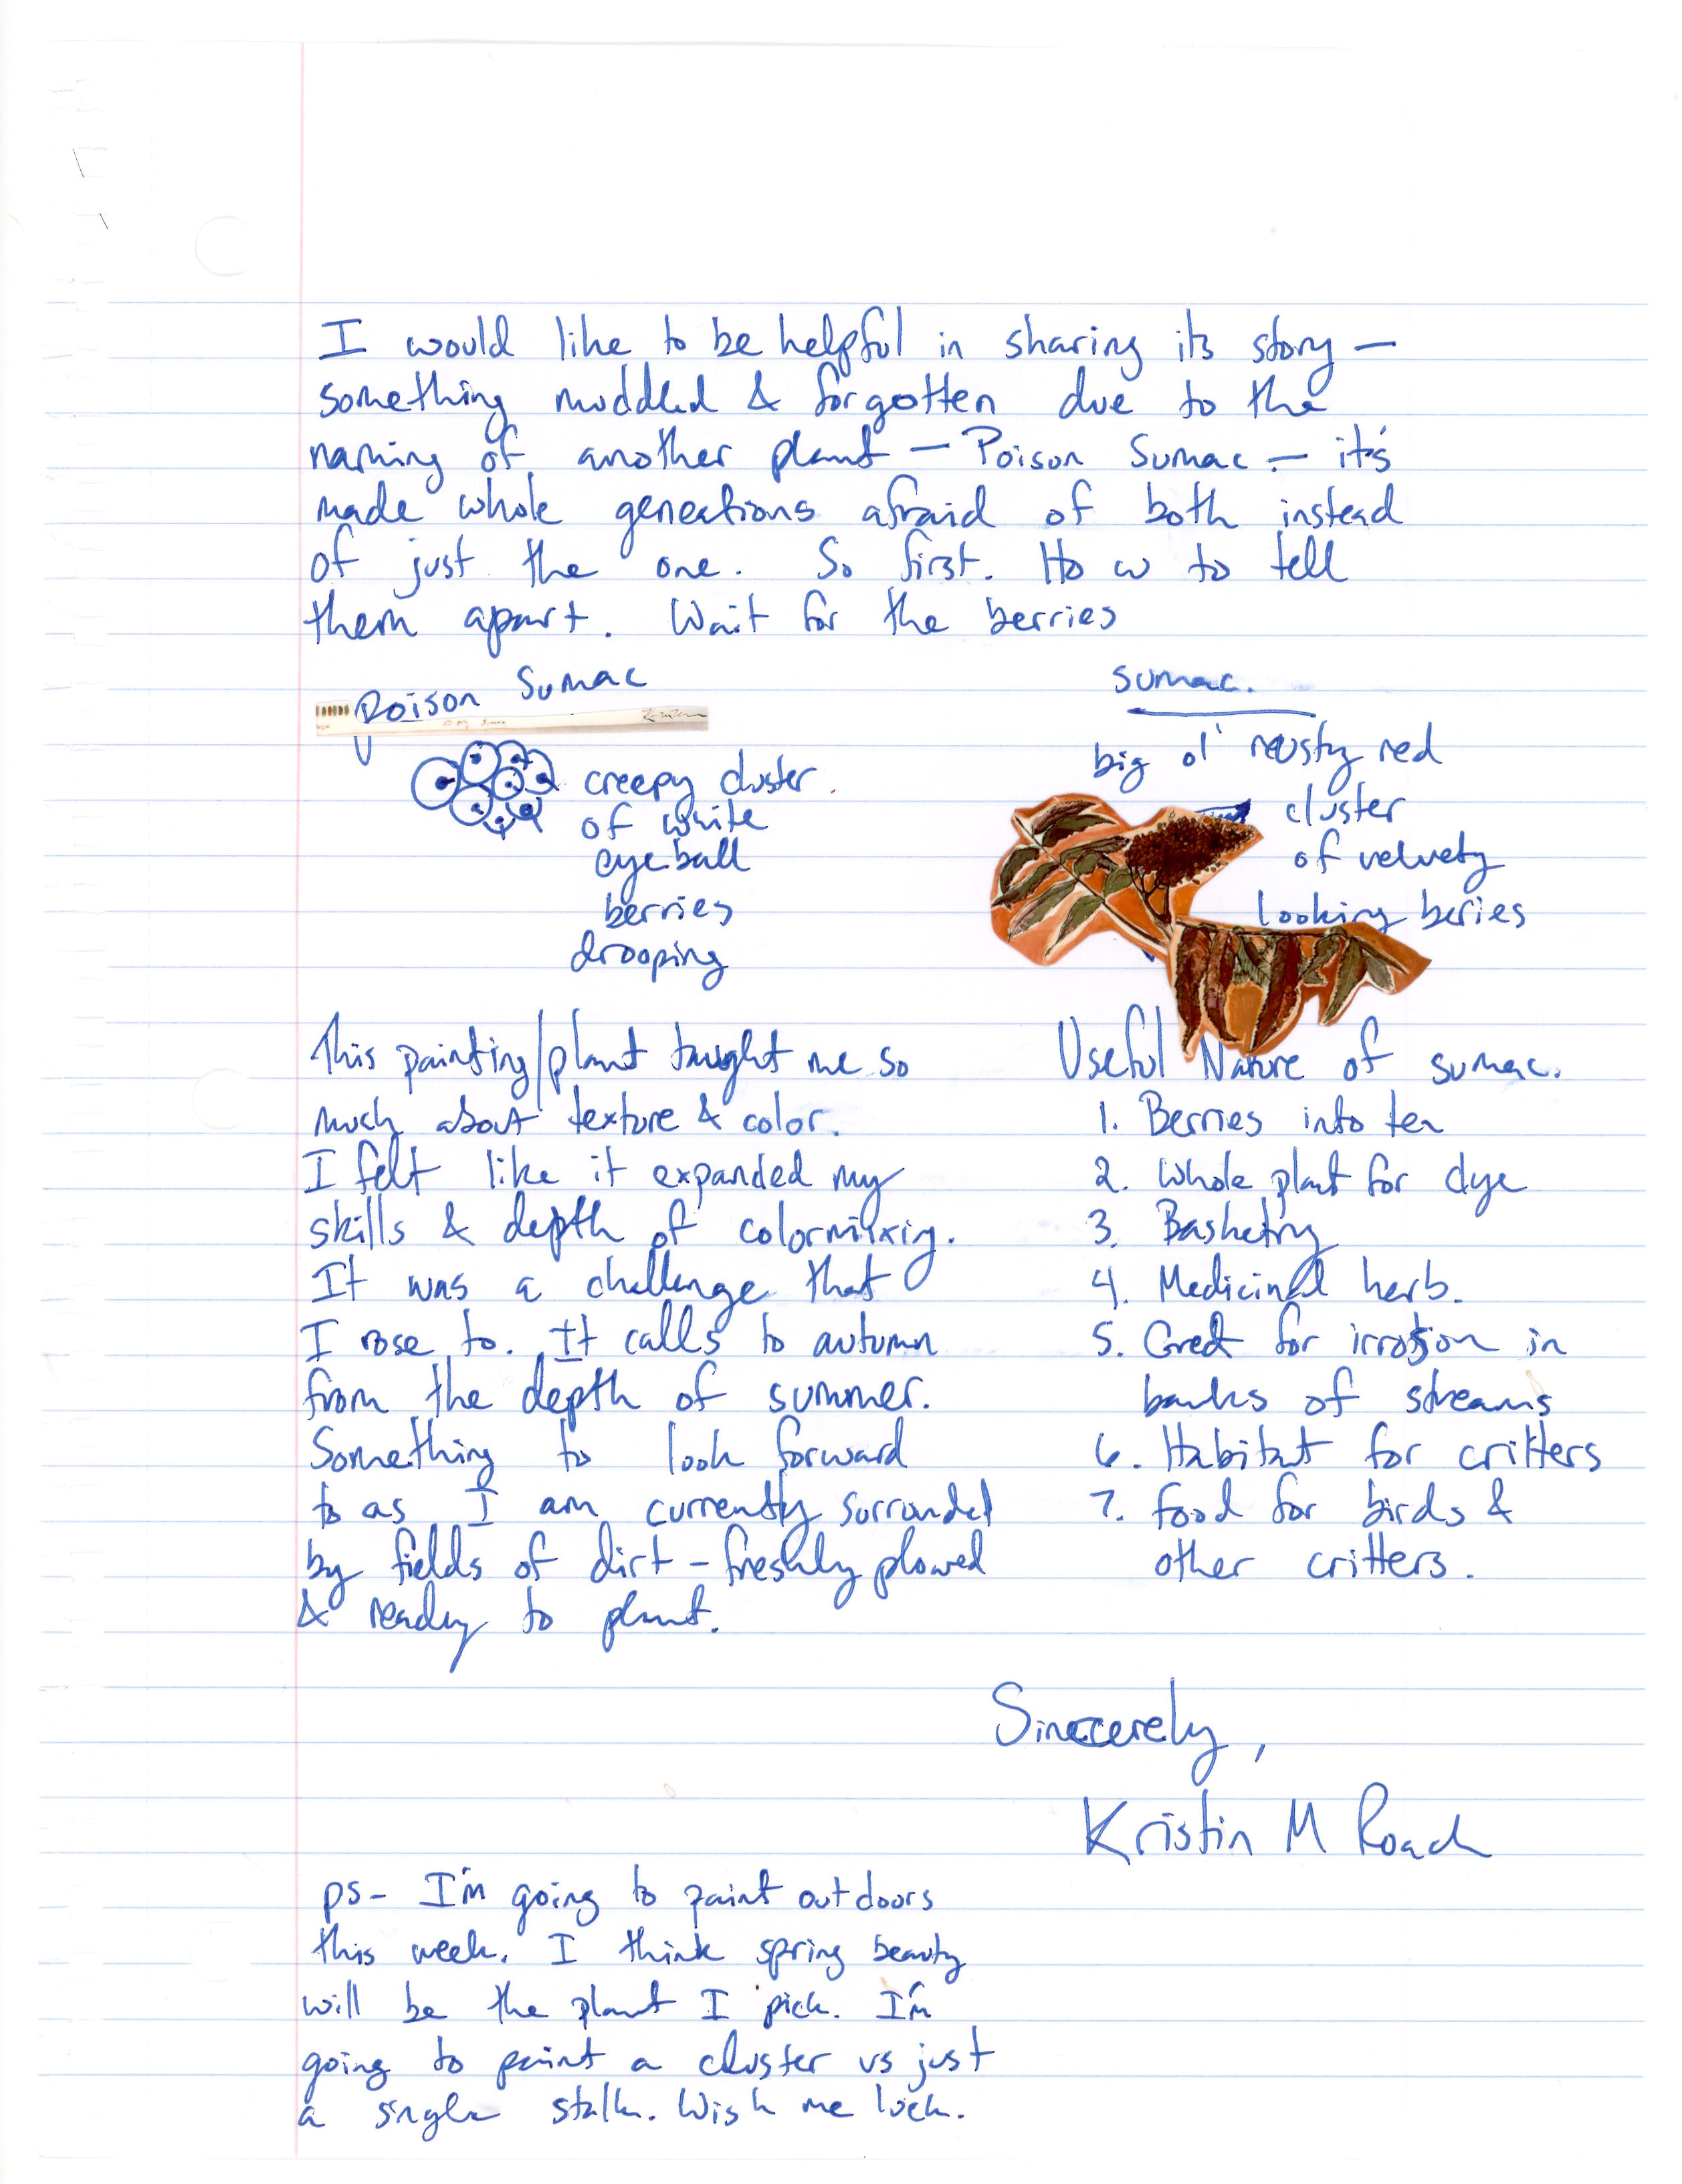 I would like to be helpful in sharing its story —
something muddled & forgotten due to the
naming of another plant — Poison Sumac — it's
made whole geneations afraid of both instead
of just the one. So first. How to tell
them apart. Wait for the berries
Poison Sumac
creepy cluster
of white
eyeball
berries
drooping
sumac.
big ol' reusty red
cluster
of velvety
looking beries
This painting/plant taught me so
much about texture & color.
I felt like it expanded my
skills & depth of colormixing.
It was a challenge that
I rose to. It calls to autumn
from the depth of summer.
Something to look forward
to as I am currently surrounded
by fields of dirt – freshly plowed
& ready to plant.
Useful Nature of sumac.
1. Berries into tea
2. Whole plant for dye
3. Basketry
4. Medicinal herb.
5. Great for irrosion in
banks of streams
6. Habitat for critters
7. food for birds &
other critters.
Sinccerely,
Kristin M Roach
ps- I'm going to paint outdoors
this week. I think spring beauty
will be the plant I pick. I'm
going to paint a cluster vs just
a single stalk. Wish me luck.